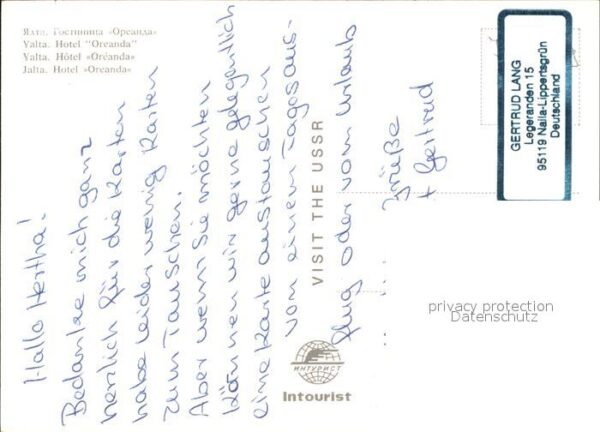 Ялта. Гостиница «Ореанда»
Yalta. Hotel "Oreanda"
Yalta. Hôtel «Oréanda»
Jalta. Hotel «Oreanda»
Hallo Hertha!
Bedanke mich ganz
herzlich für die Karten
habe leider wenig Karten
zum Tauschen.
Aber wenn sie möchten
können wir gerne gelegentlich
eine Karte austauschen
von einem Tagesaus-
flug oder vom Urlaub
Grüße
+ Gertrud
VISIT THE USSR
ИНТУРИСТ
Intourist
GERTRUD LANG
Legeranden 15
95119 Naila-Lippertsgrün
Deutschland
privacy protection
Datenschutz